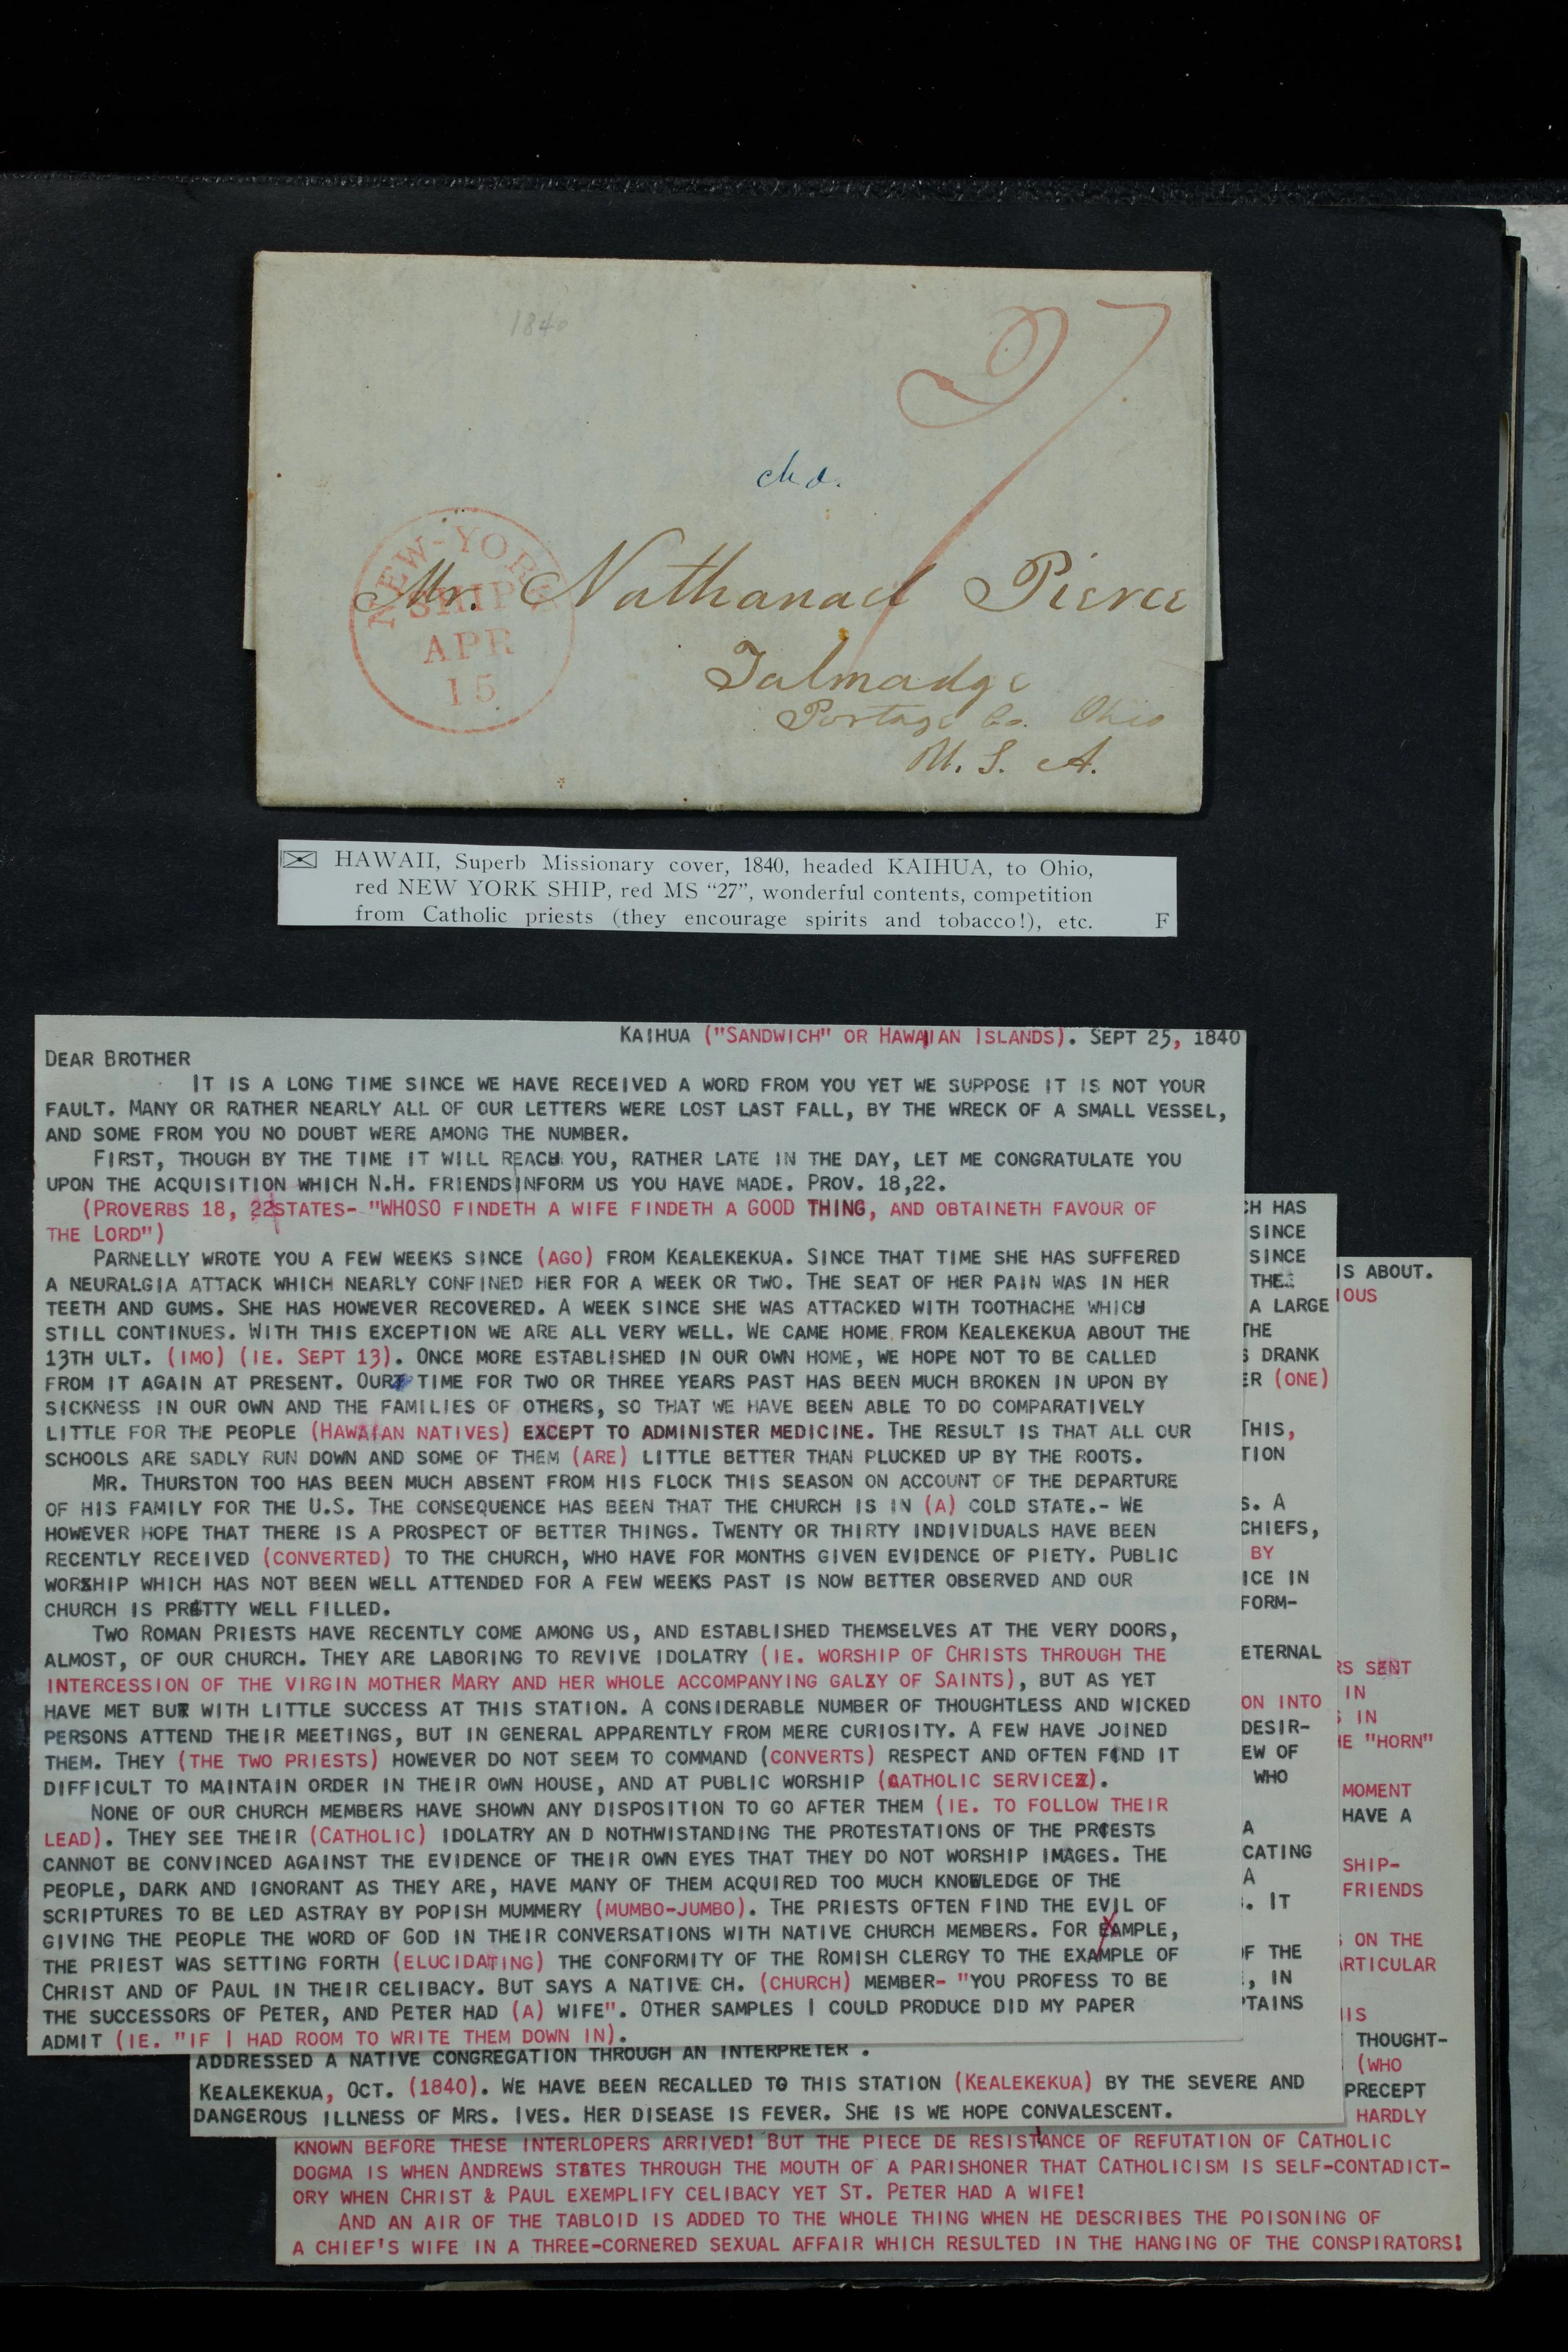 1840
27
chd.
NEW-YORK
SHIP
APR
15
Mr. Nathanael Pierce
Talmadge
Portage Co. Ohio
U. S. A.
HAWAII, Superb Missionary cover, 1840, headed KAIHUA, to Ohio,
red NEW YORK SHIP, red MS “27”, wonderful contents, competition
from Catholic priests (they encourage spirits and tobacco!), etc. F
KAIHUA ("SANDWICH" OR HAWAIIAN ISLANDS). SEPT 25, 1840
DEAR BROTHER
IT IS A LONG TIME SINCE WE HAVE RECEIVED A WORD FROM YOU YET WE SUPPOSE IT IS NOT YOUR
FAULT. MANY OR RATHER NEARLY ALL OF OUR LETTERS WERE LOST LAST FALL, BY THE WRECK OF A SMALL VESSEL,
AND SOME FROM YOU NO DOUBT WERE AMONG THE NUMBER.
FIRST, THOUGH BY THE TIME IT WILL REACH YOU, RATHER LATE IN THE DAY, LET ME CONGRATULATE YOU
UPON THE ACQUISITION WHICH N.H. FRIENDS INFORM US YOU HAVE MADE. PROV. 18,22.
(PROVERBS 18, 22 STATES- "WHOSO FINDETH A WIFE FINDETH A GOOD THING, AND OBTAINETH FAVOUR OF
THE LORD")
PARNELLY WROTE YOU A FEW WEEKS SINCE (AGO) FROM KEALEKEKUA. SINCE THAT TIME SHE HAS SUFFERED
A NEURALGIA ATTACK WHICH NEARLY CONFINED HER FOR A WEEK OR TWO. THE SEAT OF HER PAIN WAS IN HER
TEETH AND GUMS. SHE HAS HOWEVER RECOVERED. A WEEK SINCE SHE WAS ATTACKED WITH TOOTHACHE WHICH
STILL CONTINUES. WITH THIS EXCEPTION WE ARE ALL VERY WELL. WE CAME HOME FROM KEALEKEKUA ABOUT THE
13TH ULT. (IMO) (IE. SEPT 13). ONCE MORE ESTABLISHED IN OUR OWN HOME, WE HOPE NOT TO BE CALLED
FROM IT AGAIN AT PRESENT. OUR TIME FOR TWO OR THREE YEARS PAST HAS BEEN MUCH BROKEN IN UPON BY
SICKNESS IN OUR OWN AND THE FAMILIES OF OTHERS, SO THAT WE HAVE BEEN ABLE TO DO COMPARATIVELY
LITTLE FOR THE PEOPLE (HAWAIAN NATIVES) EXCEPT TO ADMINISTER MEDICINE. THE RESULT IS THAT ALL OUR
SCHOOLS ARE SADLY RUN DOWN AND SOME OF THEM (ARE) LITTLE BETTER THAN PLUCKED UP BY THE ROOTS.
MR. THURSTON TOO HAS BEEN MUCH ABSENT FROM HIS FLOCK THIS SEASON ON ACCOUNT OF THE DEPARTURE
OF HIS FAMILY FOR THE U.S. THE CONSEQUENCE HAS BEEN THAT THE CHURCH IS IN (A) COLD STATE.- WE
HOWEVER HOPE THAT THERE IS A PROSPECT OF BETTER THINGS. TWENTY OR THIRTY INDIVIDUALS HAVE BEEN
RECENTLY RECEIVED (CONVERTED) TO THE CHURCH, WHO HAVE FOR MONTHS GIVEN EVIDENCE OF PIETY. PUBLIC
WORSHIP WHICH HAS NOT BEEN WELL ATTENDED FOR A FEW WEEKS PAST IS NOW BETTER OBSERVED AND OUR
CHURCH IS PRETTY WELL FILLED.
TWO ROMAN PRIESTS HAVE RECENTLY COME AMONG US, AND ESTABLISHED THEMSELVES AT THE VERY DOORS,
ALMOST, OF OUR CHURCH. THEY ARE LABORING TO REVIVE IDOLATRY (IE. WORSHIP OF CHRISTS THROUGH THE
INTERCESSION OF THE VIRGIN MOTHER MARY AND HER WHOLE ACCOMPANYING GALXY OF SAINTS), BUT AS YET
HAVE MET BUT WITH LITTLE SUCCESS AT THIS STATION. A CONSIDERABLE NUMBER OF THOUGHTLESS AND WICKED
PERSONS ATTEND THEIR MEETINGS, BUT IN GENERAL APPARENTLY FROM MERE CURIOSITY. A FEW HAVE JOINED
THEM. THEY (THE TWO PRIESTS) HOWEVER DO NOT SEEM TO COMMAND (CONVERTS) RESPECT AND OFTEN FIND IT
DIFFICULT TO MAINTAIN ORDER IN THEIR OWN HOUSE, AND AT PUBLIC WORSHIP (CATHOLIC SERVICES).
NONE OF OUR CHURCH MEMBERS HAVE SHOWN ANY DISPOSITION TO GO AFTER THEM (IE. TO FOLLOW THEIR
LEAD). THEY SEE THEIR (CATHOLIC) IDOLATRY AN D NOTHWISTANDING THE PROTESTATIONS OF THE PRIESTS
CANNOT BE CONVINCED AGAINST THE EVIDENCE OF THEIR OWN EYES THAT THEY DO NOT WORSHIP IMAGES. THE
PEOPLE, DARK AND IGNORANT AS THEY ARE, HAVE MANY OF THEM ACQUIRED TOO MUCH KNOWLEDGE OF THE
SCRIPTURES TO BE LED ASTRAY BY POPISH MUMMERY (MUMBO-JUMBO). THE PRIESTS OFTEN FIND THE EVIL OF
GIVING THE PEOPLE THE WORD OF GOD IN THEIR CONVERSATIONS WITH NATIVE CHURCH MEMBERS. FOR EXAMPLE,
THE PRIEST WAS SETTING FORTH (ELUCIDATING) THE CONFORMITY OF THE ROMISH CLERGY TO THE EXAMPLE OF
CHRIST AND OF PAUL IN THEIR CELIBACY. BUT SAYS A NATIVE CH. (CHURCH) MEMBER- "YOU PROFESS TO BE
THE SUCCESSORS OF PETER, AND PETER HAD (A) WIFE". OTHER SAMPLES I COULD PRODUCE DID MY PAPER
ADMIT (IE. "IF I HAD ROOM TO WRITE THEM DOWN IN).
CH HAS
SINCE
SINCE
THE
A LARGE
THE
S DRANK
ER (ONE)
THIS,
TION
S. A
CHIEFS,
BY
ICE IN
FORM-
ETERNAL
ON INTO
DESIR-
EW OF
WHO
A
CATING
A
. IT
OF THE
, IN
PTAINS
ADDRESSED A NATIVE CONGREGATION THROUGH AN INTERPRETER .
KEALEKEKUA, OCT. (1840). WE HAVE BEEN RECALLED TO THIS STATION (KEALEKEKUA) BY THE SEVERE AND
DANGEROUS ILLNESS OF MRS. IVES. HER DISEASE IS FEVER. SHE IS WE HOPE CONVALESCENT.
IS ABOUT.
IOUS
RS SENT
IN
S IN
HE "HORN"
MOMENT
HAVE A
SHIP-
FRIENDS
S ON THE
ARTICULAR
HIS
THOUGHT-
(WHO
PRECEPT
HARDLY
KNOWN BEFORE THESE INTERLOPERS ARRIVED! BUT THE PIECE DE RESISTANCE OF REFUTATION OF CATHOLIC
DOGMA IS WHEN ANDREWS STATES THROUGH THE MOUTH OF A PARISHONER THAT CATHOLICISM IS SELF-CONTADICT-
ORY WHEN CHRIST & PAUL EXEMPLIFY CELIBACY YET ST. PETER HAD A WIFE!
AND AN AIR OF THE TABLOID IS ADDED TO THE WHOLE THING WHEN HE DESCRIBES THE POISONING OF
A CHIEF'S WIFE IN A THREE-CORNERED SEXUAL AFFAIR WHICH RESULTED IN THE HANGING OF THE CONSPIRATORS!